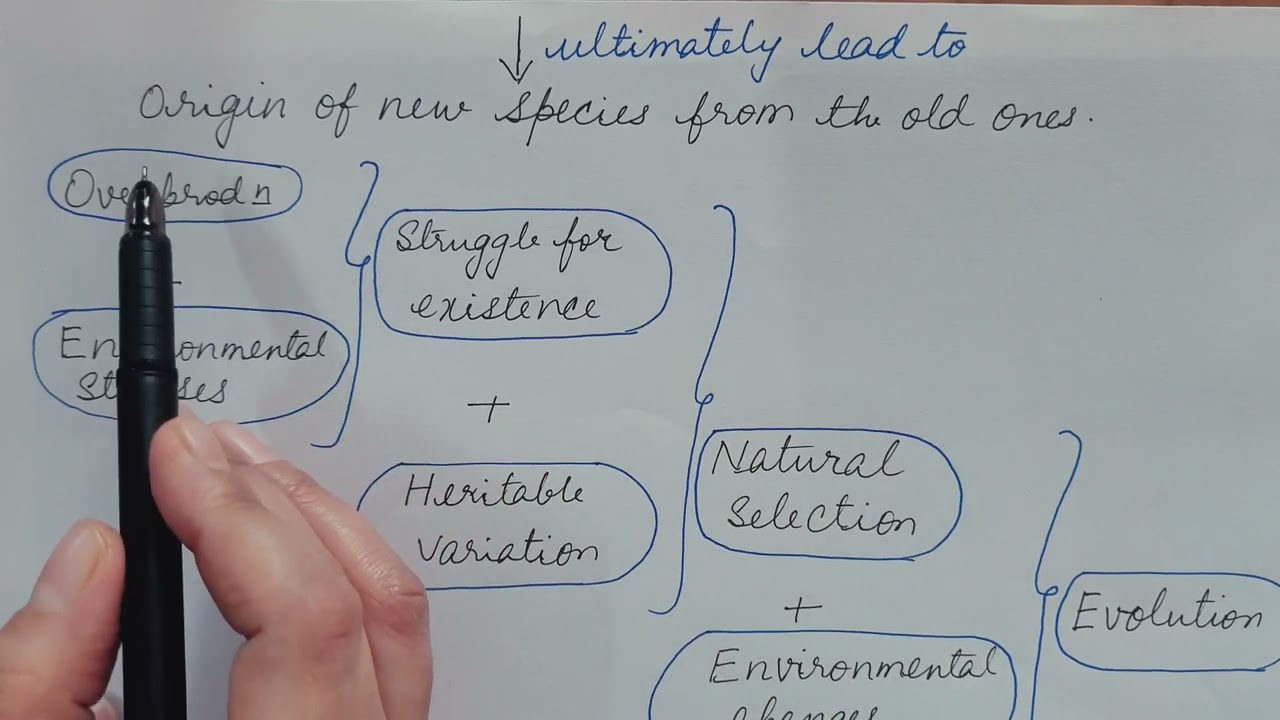 ↓ ultimately lead to
Origin of new species from the old ones.
Overprodn
+
Environmental
stresses
Struggle for
existence
+
Heritable
variation
Natural
Selection
+
Environmental
changes
Evolution